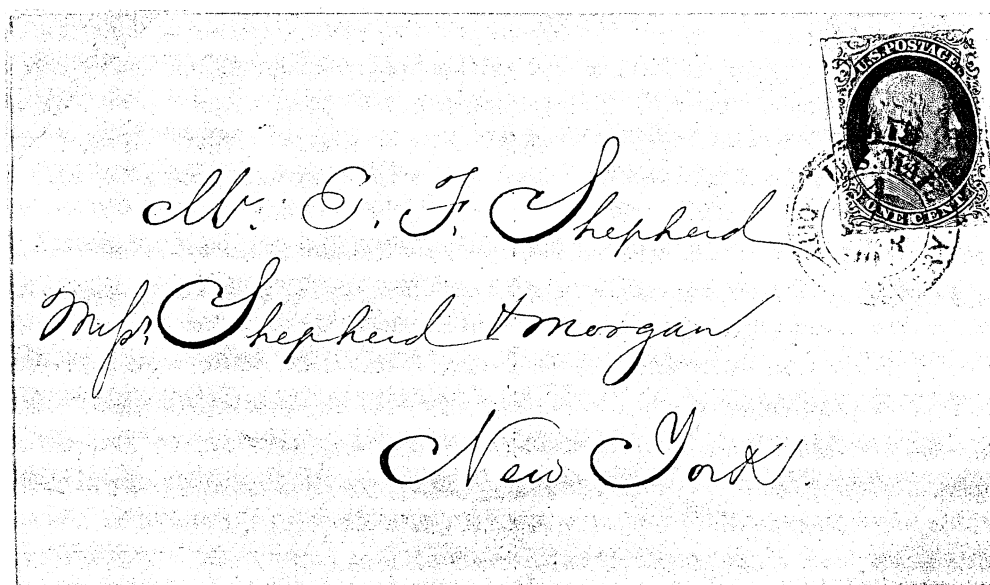 U.S. POSTAGE
U.S. MAIL
ONE CENT
Mr. E. F. Shepherd
Messrs Shepherd & Morgan
New York.